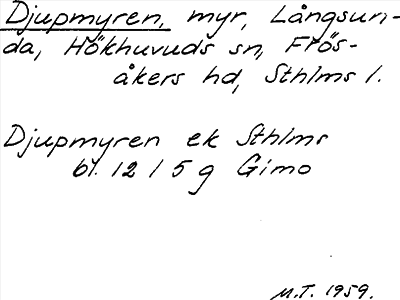 Djupmyren, myr, Långsun-
da, Hökhuvuds sn, Frös-
åkers hd, Sthlms l.
Djupmyren ek Sthlms
bl. 12 I 5 g Gimo
M.T. 1959.